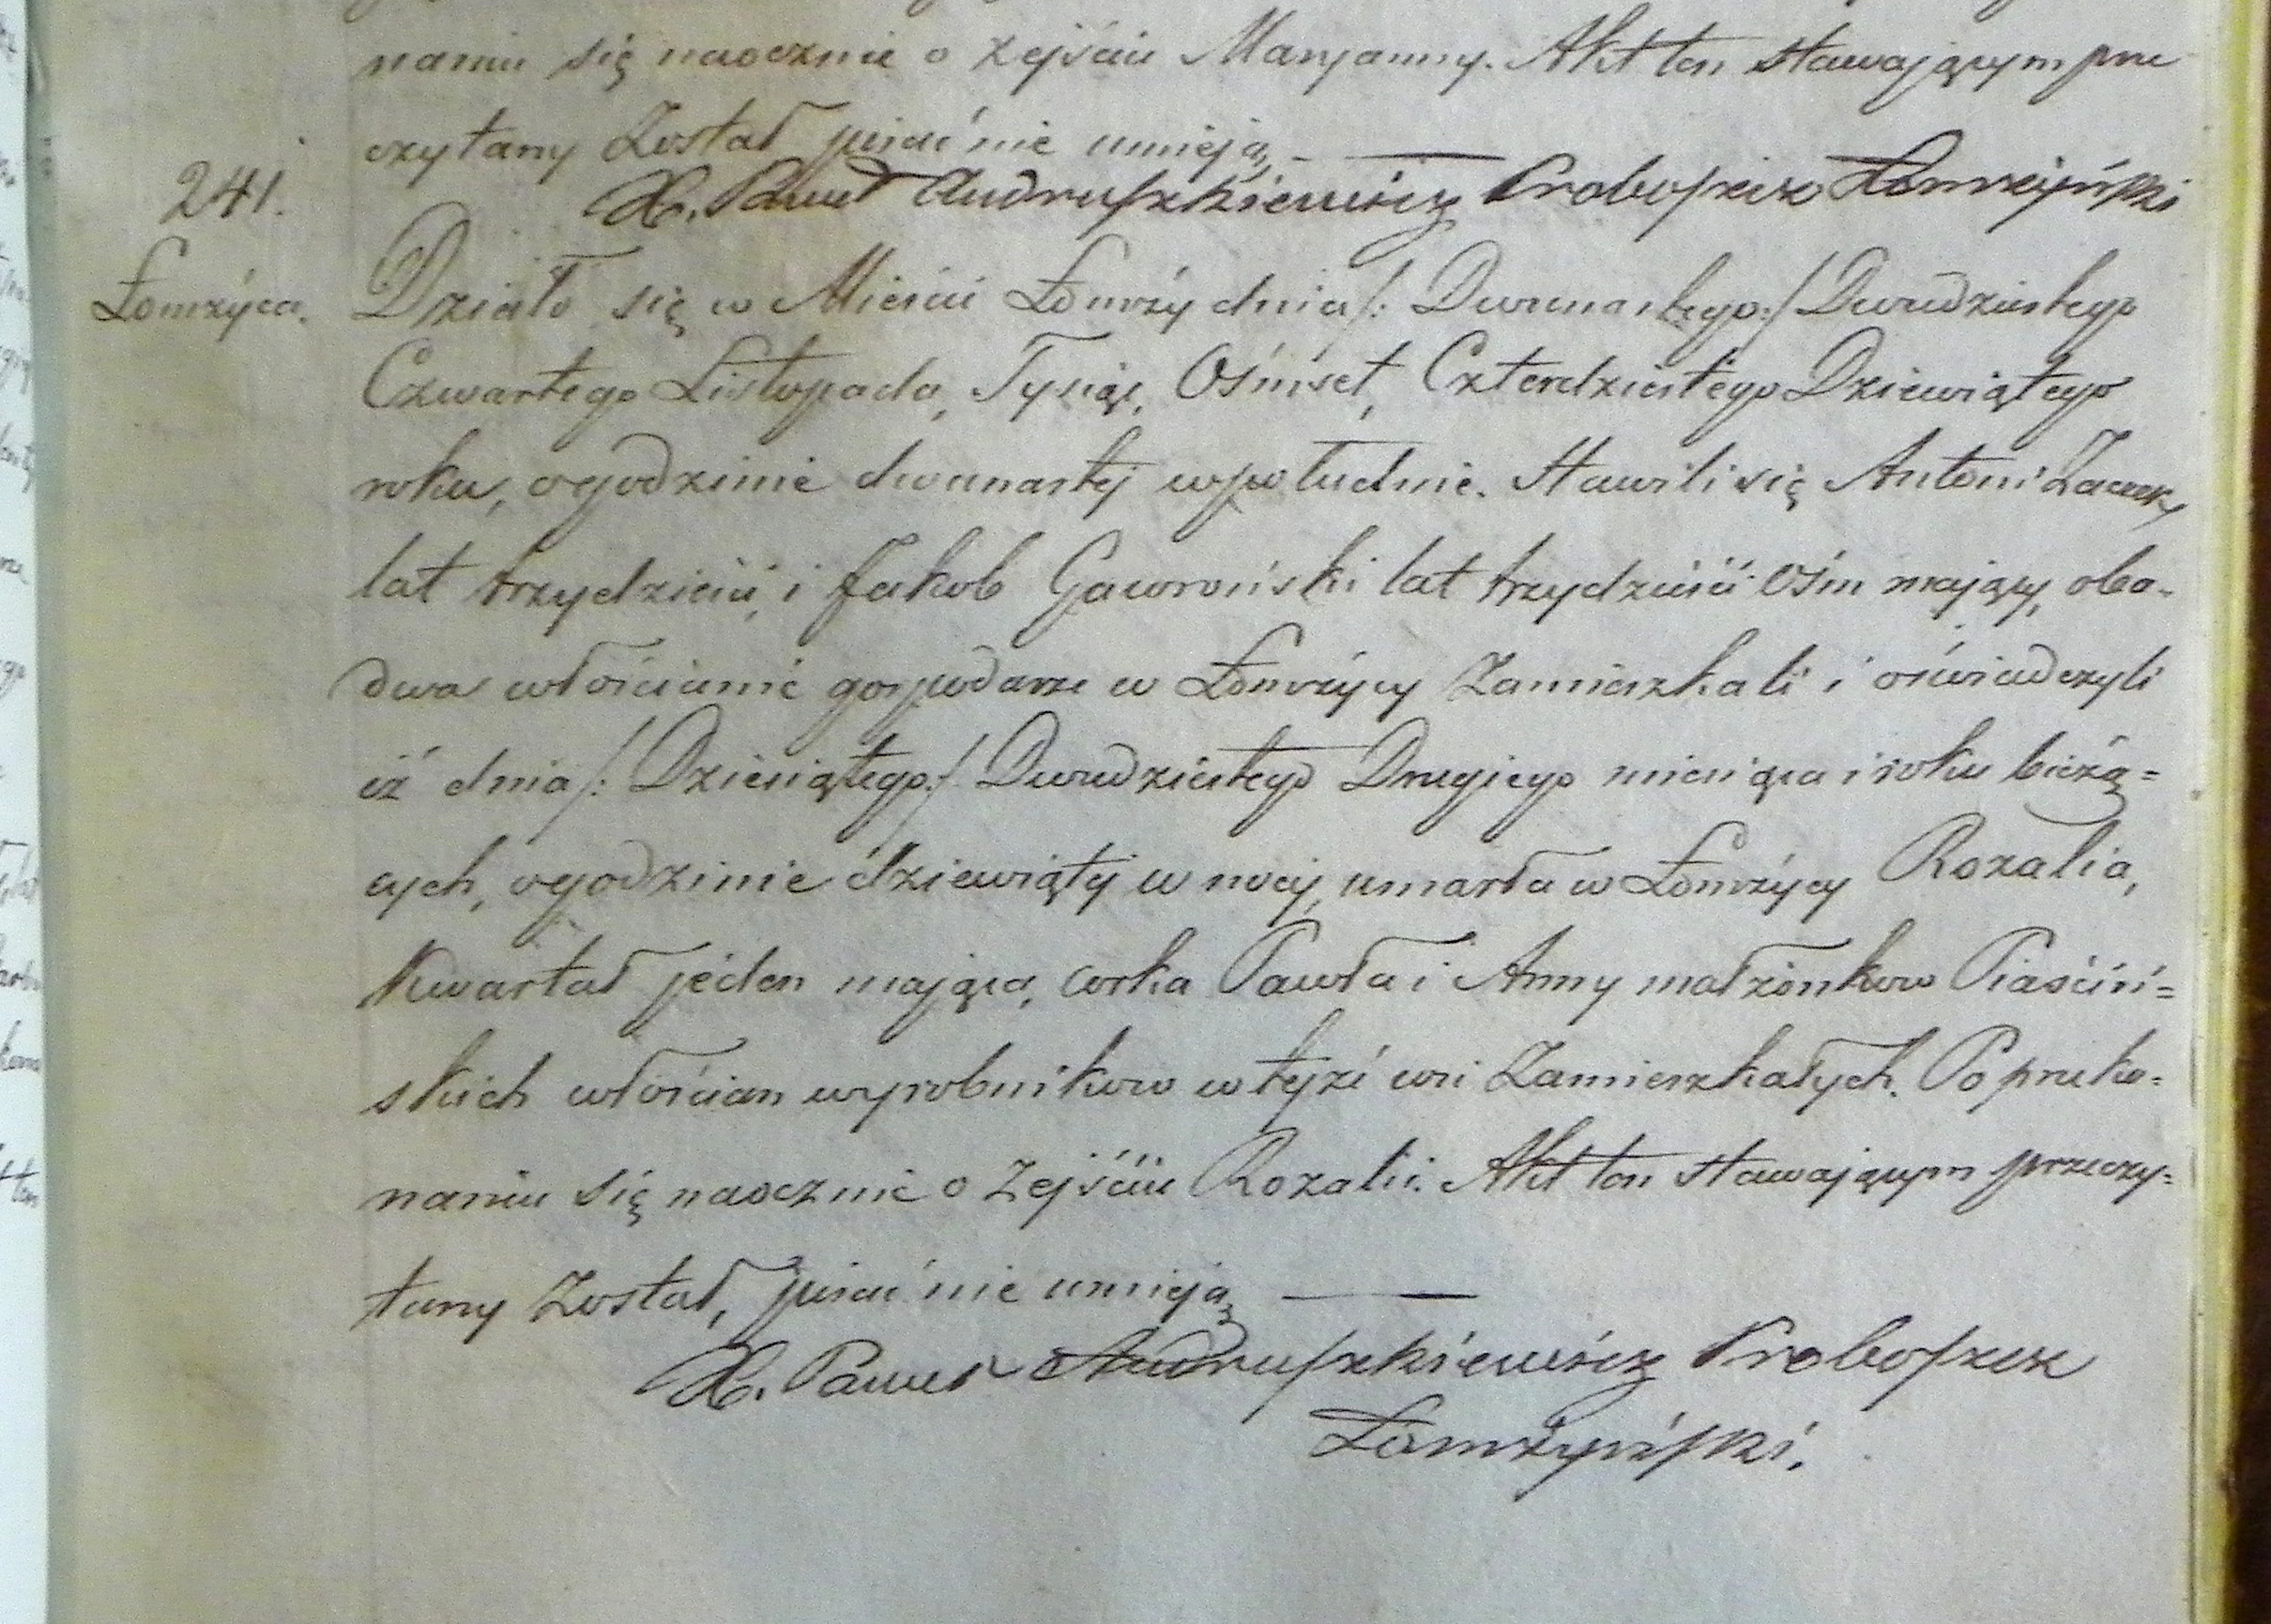 naniu się naocznie o zejściu Maryanny. Akt ten stawającym prze
czytany został pisać nie umieją. —
X. Paweł Andruszkiewicz Proboszcz Łomżyński
241.
Łomżyca.
Działo się w Mieście Łomży dnia /: Dwunastego :/ Dwudziestego
Czwartego Listopada, Tysiąc, Ośmset, Czterdziestego Dziewiątego
roku, o godzinie dwunastej w południe. Stawili się Antoni
lat trzydzieści, i Jakob Gawroński lat trzydzieści ośm mający, oba-
dwa włościanie gospodarze w Łomżycy zamieszkali i oświadczyli
iż dnia /: Dziesiątego :/ Dwudziestego Drugiego miesiąca i roku bieżą=
cych, o godzinie dziewiątej w nocy, umarła w Łomżycy Rozalia,
Kwartał jeden mająca, corka Pawła i Anny małżonkow Piaściń=
skich włościan wyrobnikow w tejże wsi zamieszkałych. Po przeko=
naniu się naocznie o zejściu Rozalii. Akt ten stawającym przeczy=
tany został, pisać nie umieją —
X. Paweł Andruszkiewicz Proboszcz
Łomżyński.